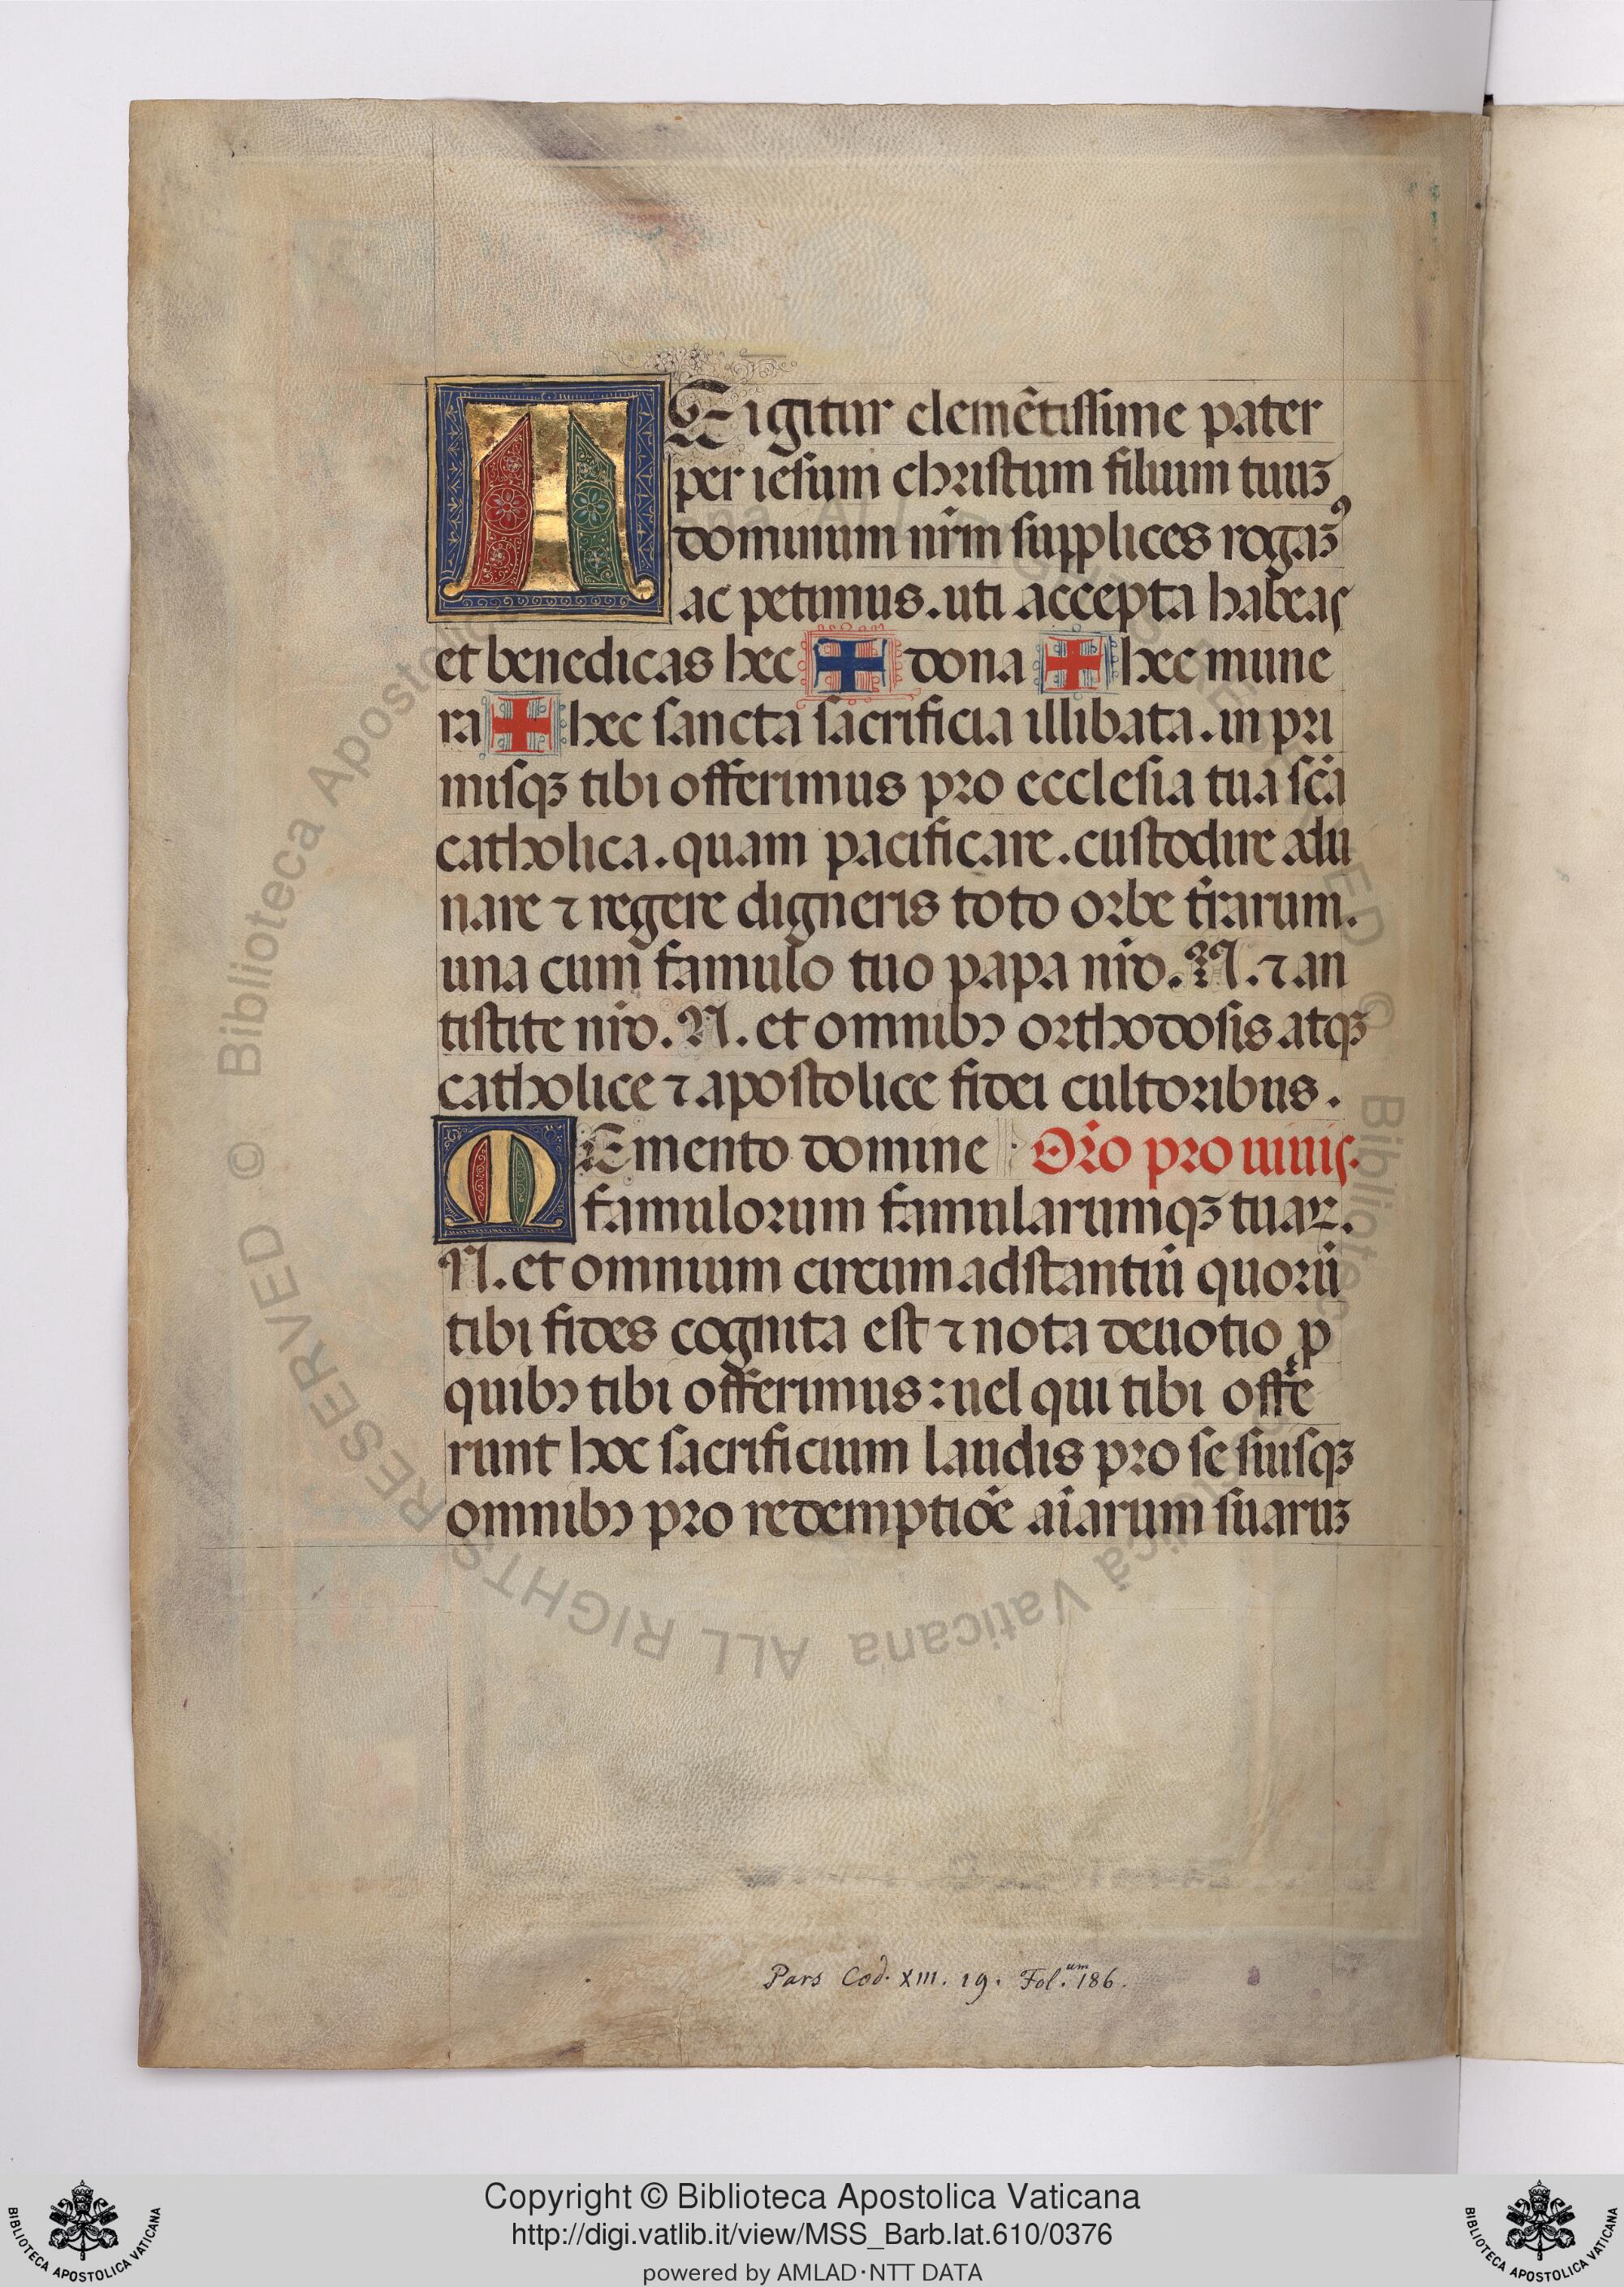 TE igitur clemētissime pater
per iesum christum filium tuuꝫ
dominum nr̄m supplices rogaꝫ⁹
ac petimus. uti accepta habeas
et benedicas hec ✠ dona ✠ hec mune
ra ✠ hec sancta sacrificia illibata. in pri
misqꝫ tibi offerimus pro ecclesia tua sc̄a
catholica. quam pacificare. custodire adu
nare ⁊ regere digneris toto orbe tr̄arum.
una cum famulo tuo papa nr̄o. N. ⁊ an
tistite nr̄o. N. et omnibꝰ orthodosis atqꝫ
catholice ⁊ apostolice fidei cultoribus.
MEmento domine Or̄o pro uiuis.
famulorum famularumqꝫ tuaꝝ.
N. et omnium circum adstantiū quorū
tibi fides cognita est ⁊ nota deuotio ꝓ
quibꝰ tibi offerimus: uel qui tibi offe
runt hoc sacrificium laudis pro se suisqꝫ
omnibꝰ pro redemptiōe aīarum suaruꝫ
Pars Cod. XIII. 19. Fol.um 186.
© Biblioteca Apostolica Vaticana ALL RIGHTS RESERVED
Copyright © Biblioteca Apostolica Vaticana
http://digi.vatlib.it/view/MSS_Barb.lat.610/0376
powered by AMLAD·NTT DATA
BIBLIOTECA APOSTOLICA VATICANA
BIBLIOTECA APOSTOLICA VATICANA